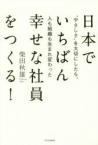 "やさしさ"を大切にしたら、
人も組織も生まれ変わった
日本で
いちばん
幸せな社員
をつくる!
柴田秋雄